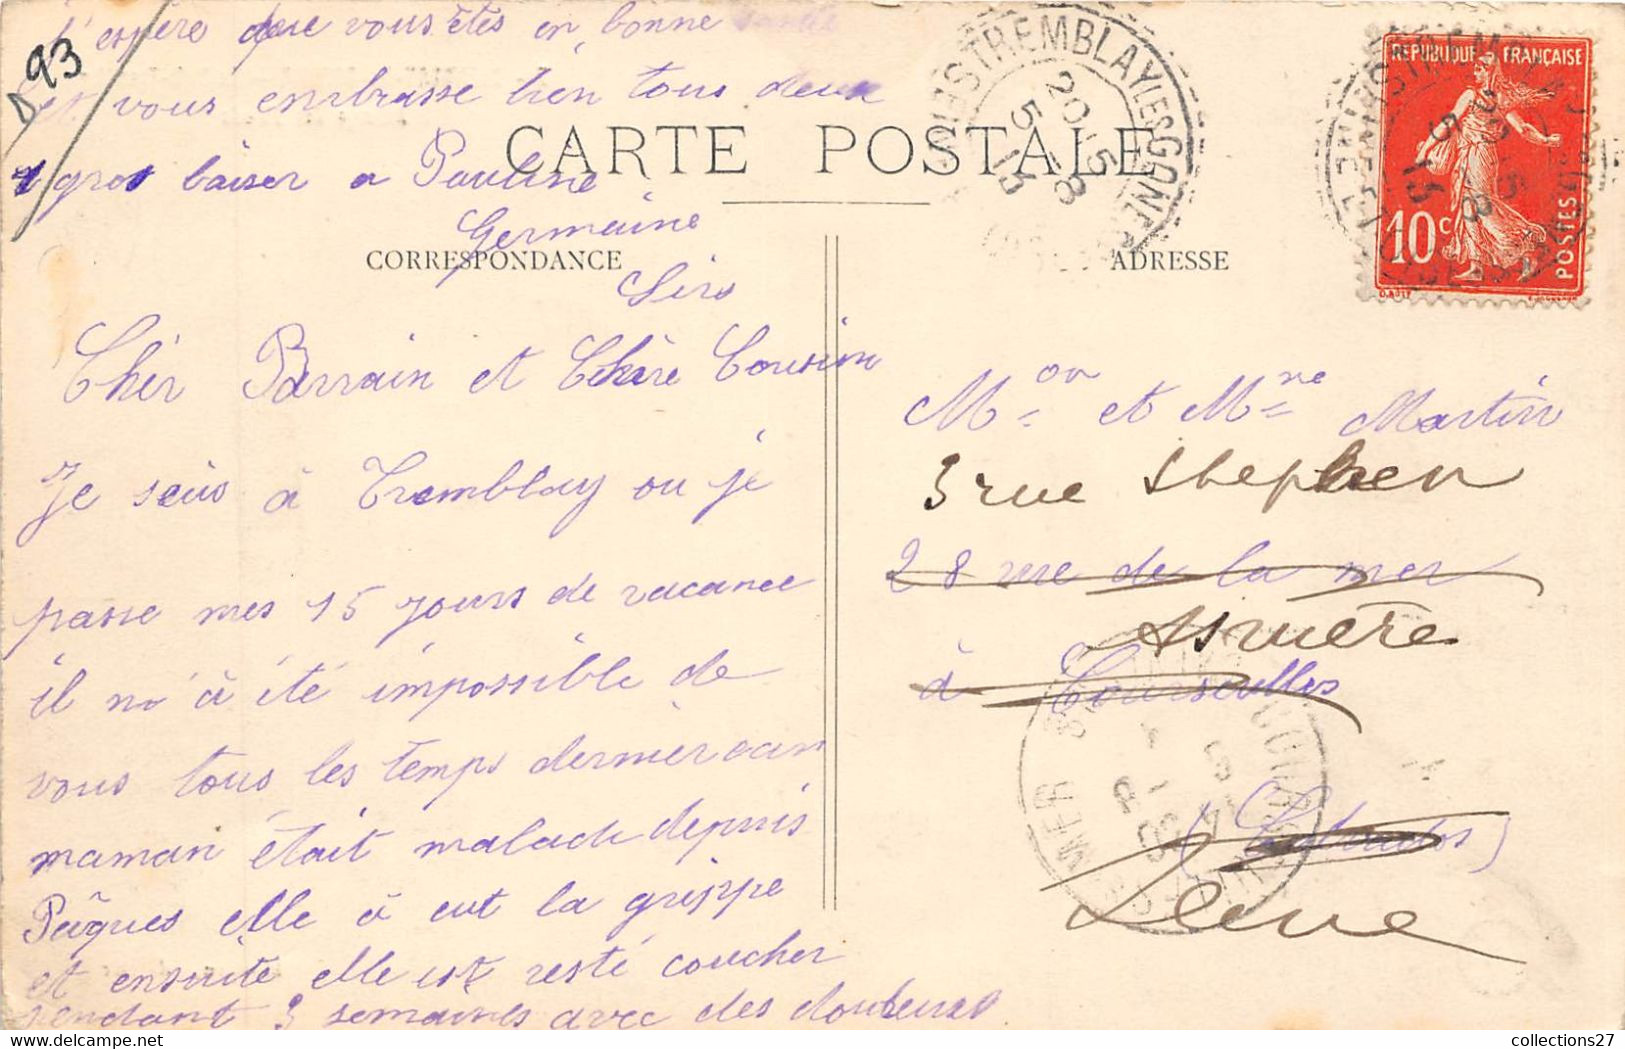 j'espère que vous êtes en bonne santé
D.93
et vous embrasse bien tous deux
CARTE POSTALE
gros baiser a Pauline
Germaine
CORRESPONDANCE
ADRESSE
TREMBLAY LES GONESSE
20·15
5 -8
13
REPUBLIQUE FRANÇAISE
10c
POSTES
Cher Parrain et Chère Cousine
Je suis à Tremblay ou je
passe mes 15 jours de vacance
il m'à été impossible de
vous tous les temps dernier car
maman était malade depuis
Pâques elle à eut la grippe
et ensuite elle est resté coucher
pendant 3 semaines avec des douleurs
Mon et Mme Martin
3 rue Stephen
28 rue de la mer
Asnière
à Courseulles
(Calvados)
Seine
collections27